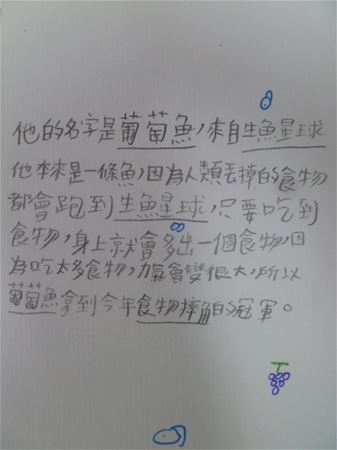 他的名字是葡萄魚,來自生魚星球
他本來是一條魚,因為人類丟掉的食物
都會跑到生魚星球,只要吃到
食物,身上就會多出一個食物,因
為吃太多食物,力氣會變很大,所以
葡萄魚拿到今年食物摔角的冠軍。